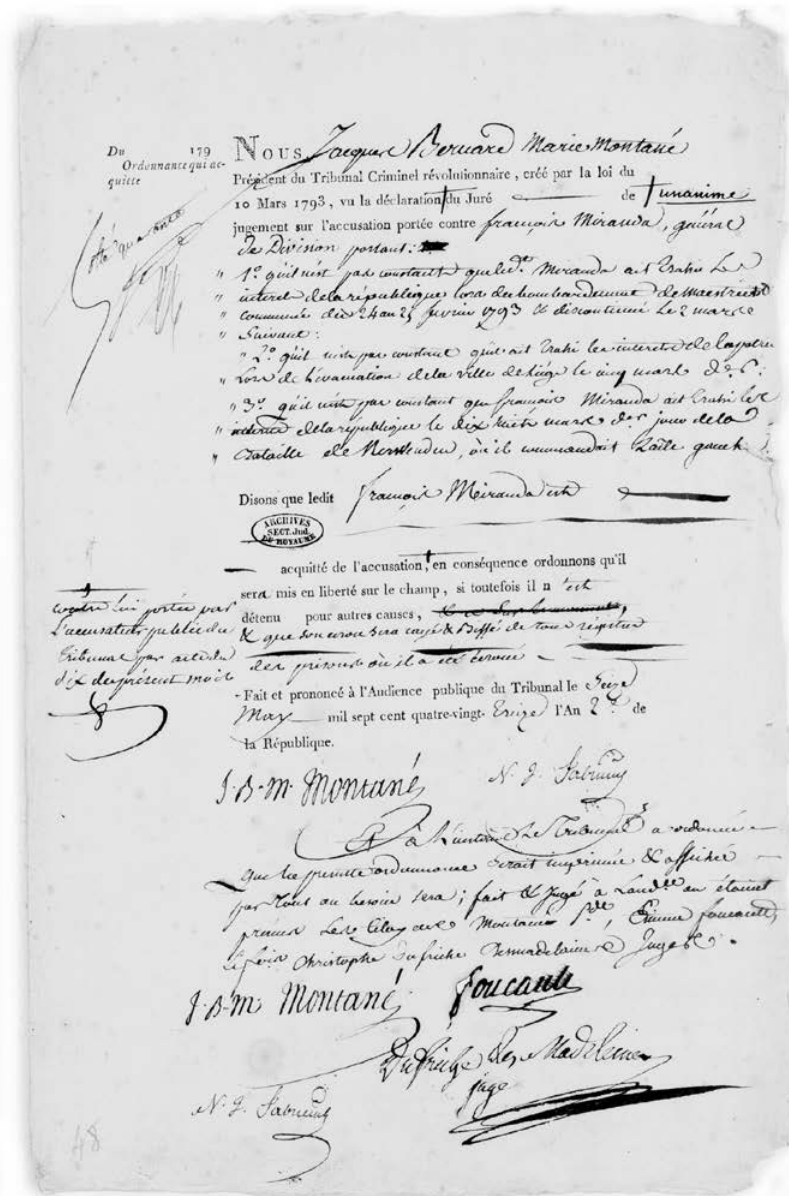 Du 179
Ordonnance qui ac-
quitte
Nous Jacques Bernard Marie Montané
Président du Tribunal Criminel révolutionnaire, créé par la loi du
10 Mars 1793, vu la déclaration † du Juré de † unanime
jugement sur l'accusation portée contre françois Miranda, général
de Division portant:
" 1.º qu'il n'est pas constant que led. Miranda ait trahi les
" interet de la république lors du bombardement de Maestricht
" commencé du 24 au 25 fevrier 1793 & discontinué le 2 mars
" Suivant:
" 2.º qu'il n'est pas constant qu'il ait trahi les interets de la
" Lors de l'évacuation de la ville de Liége le cinq mars
" 3.º qu'il n'est pas constant que françois Miranda ait trahi les
" interets de la république le dix huit mars jour de la
" Bataille de Nerwenden, où il commandait L'aile gauche
Disons que ledit françois Miranda est
ARCHIVES
SECT. Jud.
DU ROYAUME
acquitté de l'accusation, † en conséquence ordonnons qu'il
sera mis en liberté sur le champ, si toutefois il n'est
détenu pour autres causes,
& que son ecrou sera rayé & Biffé de tous registres
des prisons où il a été écroué
†
contre lui portée par
L'accusateur public du
Tribunal par acte du
dix du présent mois
Fait et prononcé à l'Audience publique du Tribunal le Seize
May mil sept cent quatre-vingt- treize l'An 2.d de
la République.
J-B-M- Montané
N. J. Fabricius
Et à L'instant Le Tribunal a ordonné
que la presente ordonnance serait imprimée & affichée
par tout ou besoin sera; fait & Jugé à L'audce ou étoient
présens Les Citoyens Montané Pdt, Etienne foucault,
Christophe Dufriche Desmadelaine Juges.
J-B-M Montané
foucault
Dufriche Des Madeleine
juge
N. J. Fabricius
48